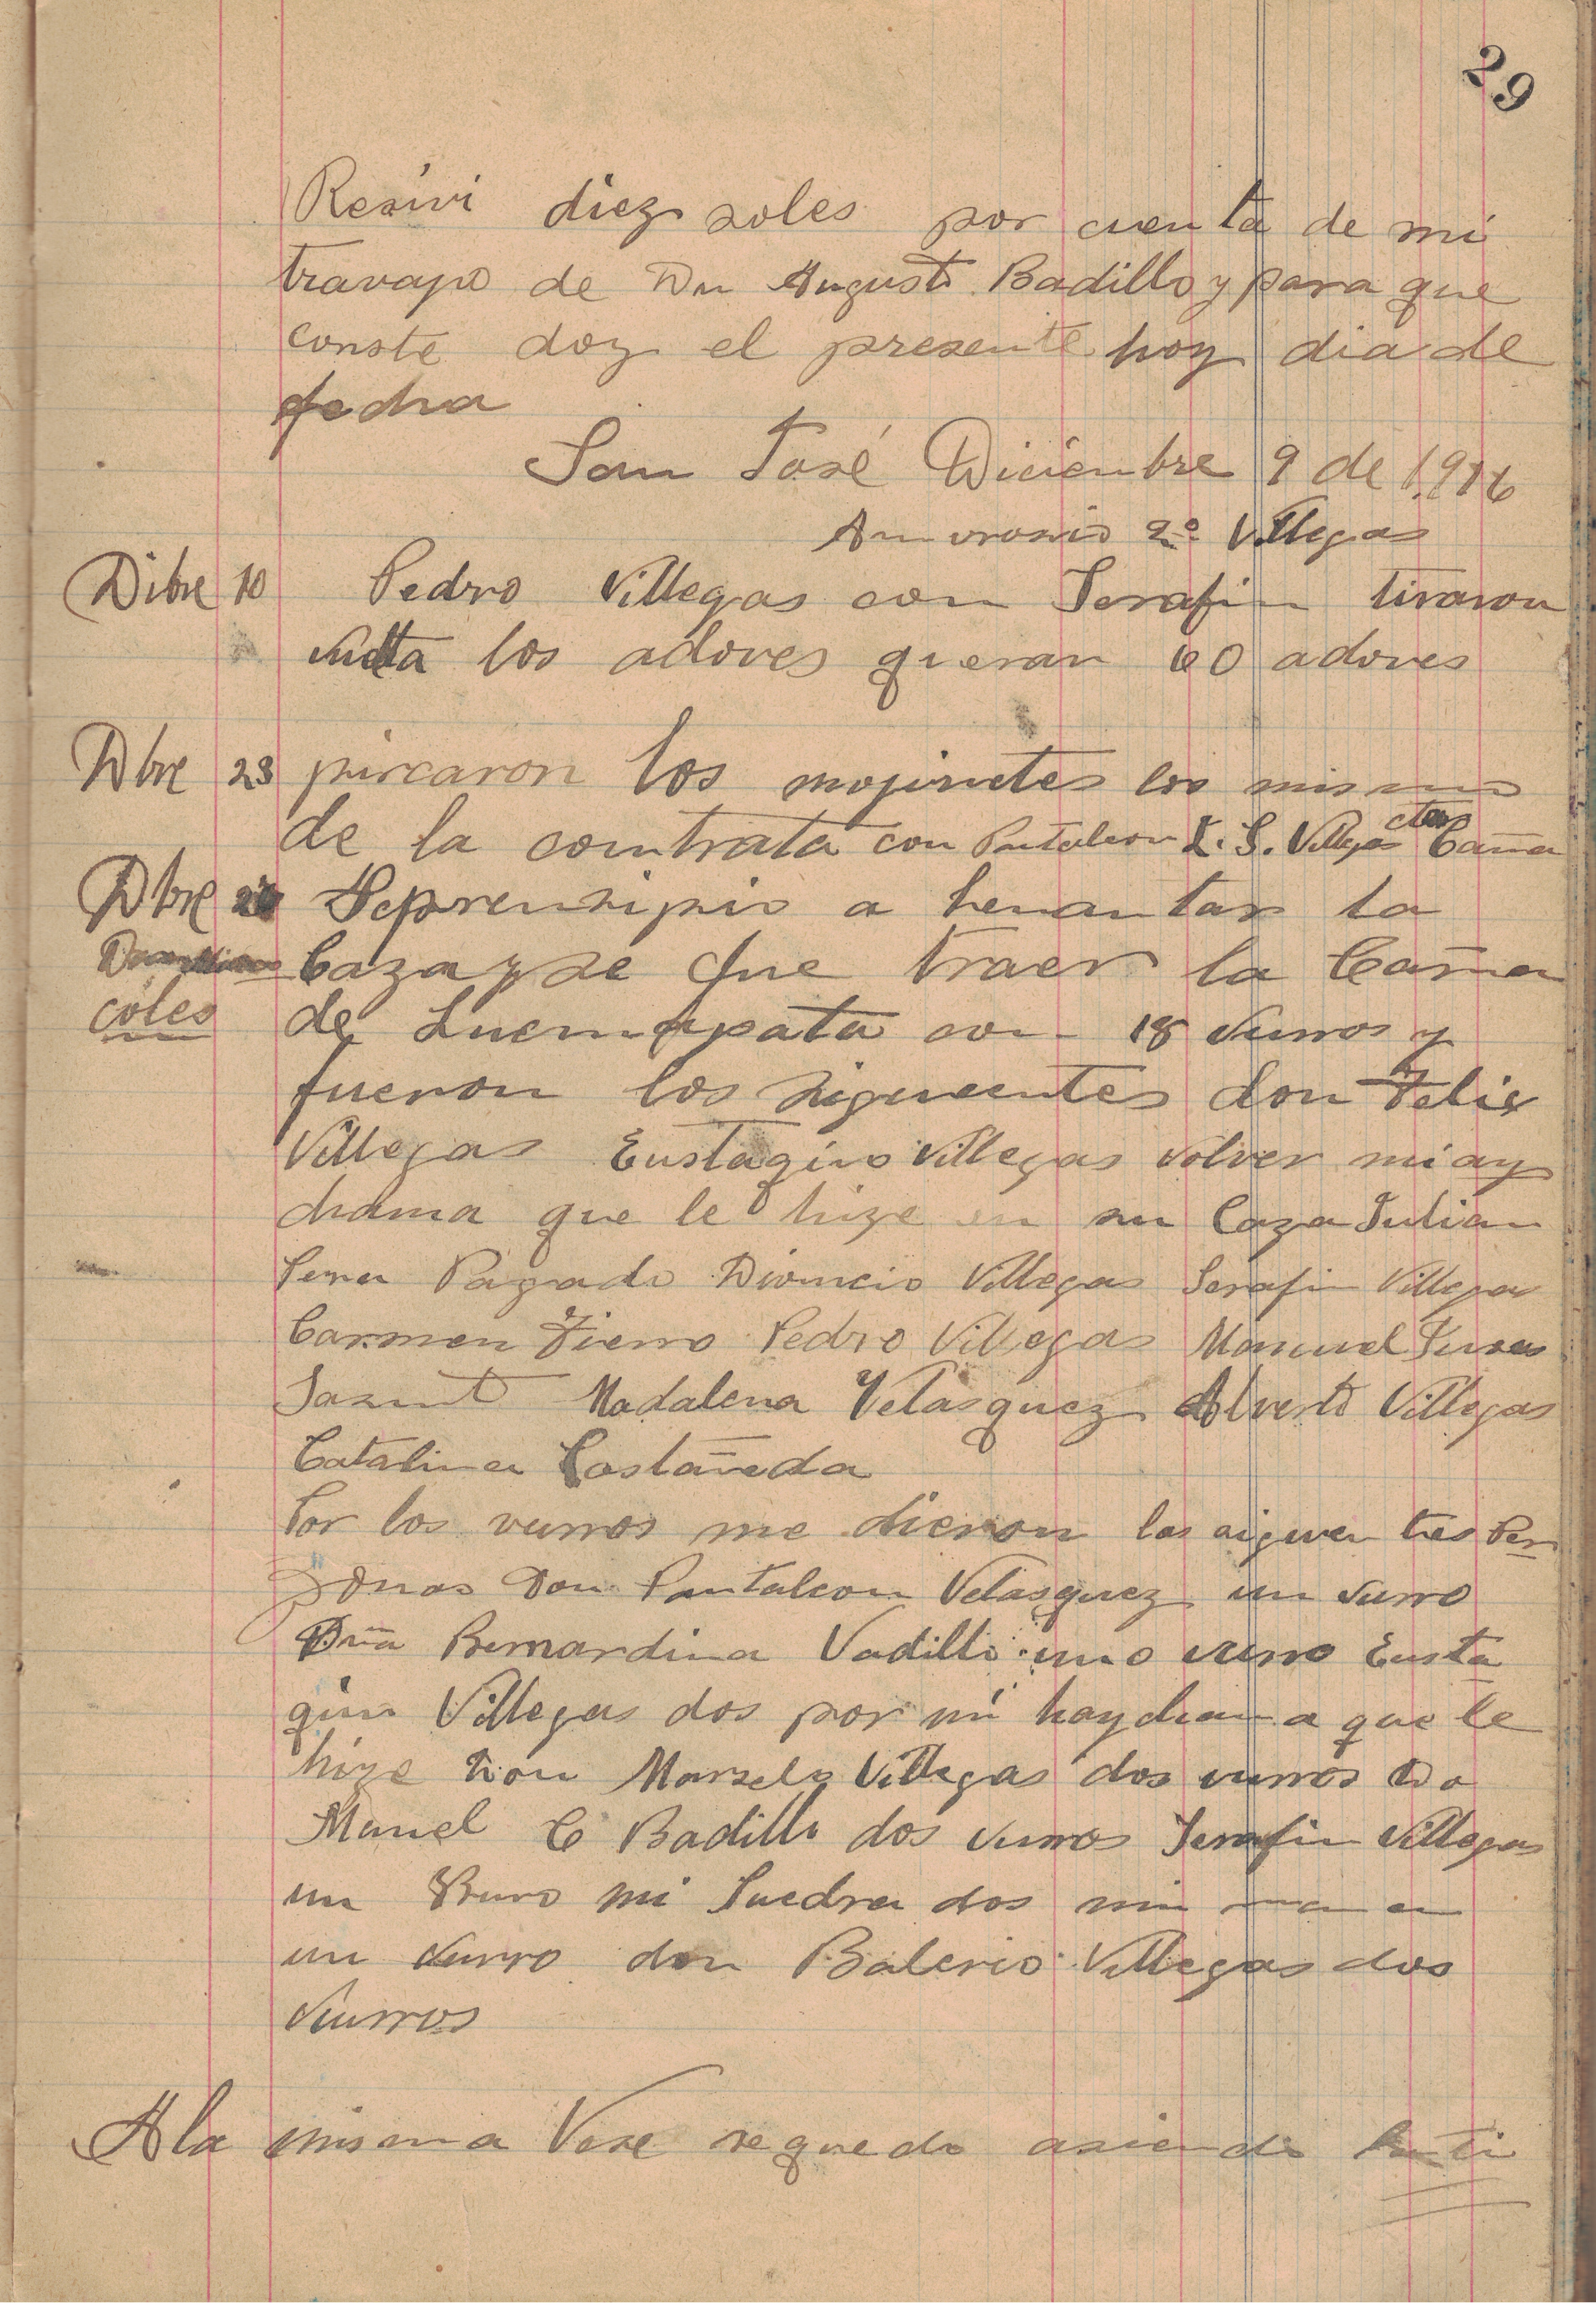 29
Resivi diez soles por cuenta de mi
travajo de Dn Augusto Badillo y para que
conste doy el presente hoy dia de
fecha
San José Diciembre 9 de 1916
Amvrosio 2º Villegas
Dibre 10 Pedro Villegas con Serafin tiraron
vuelta los adoves queran 60 adoves
Dbre 23 pircaron los mojinetes los mismo
de la contrata con Pantaleon L. S. Villegas Caña
Dbre Seprensipio a lenantar la
Caza y se fue traer la Caña
coles de Lucmapata con 18 vurros y
fueron los sigueentes don Felis
Villegas Eustaqino Villegas volver mi ay
chama que le hize en su Caza Julian
Pagado Dioncio Villegas Serafin Villegas
Carmen Fierro Pedro Villegas Manuel
Madalena Velasquez Alverto Villegas
Catalina Castañeda
Por los vurros me dieron las siguen tes Per
zonas Don Pantaleon Velasquez un vurro
Dña Bernardina Vadillo uno vurro Eusta
quio Villegas dos por mi haychama que le
hize Don Marselo Villegas dos vurros Do
Manuel C Badillo dos vurros Serafin Villegas
un Burro mi Suedra dos mi mama
un vurro don Balerio Villegas dos
vurros
A la misma Vese se quedo asiendo